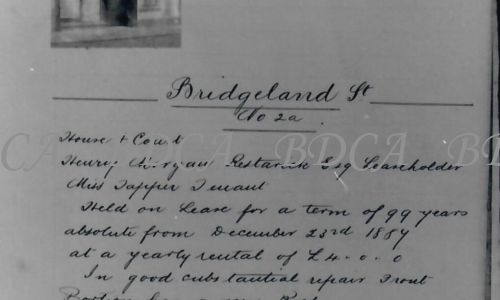 Bridgeland St
No 2a
House & Court
Henry Esq Leaseholder
Miss Tapper Tenant
Held on Lease for a term of 99 years
absolute from December 23rd 1887
at a yearly rental of £4.0.0
In good substantial repair Front
BDCA